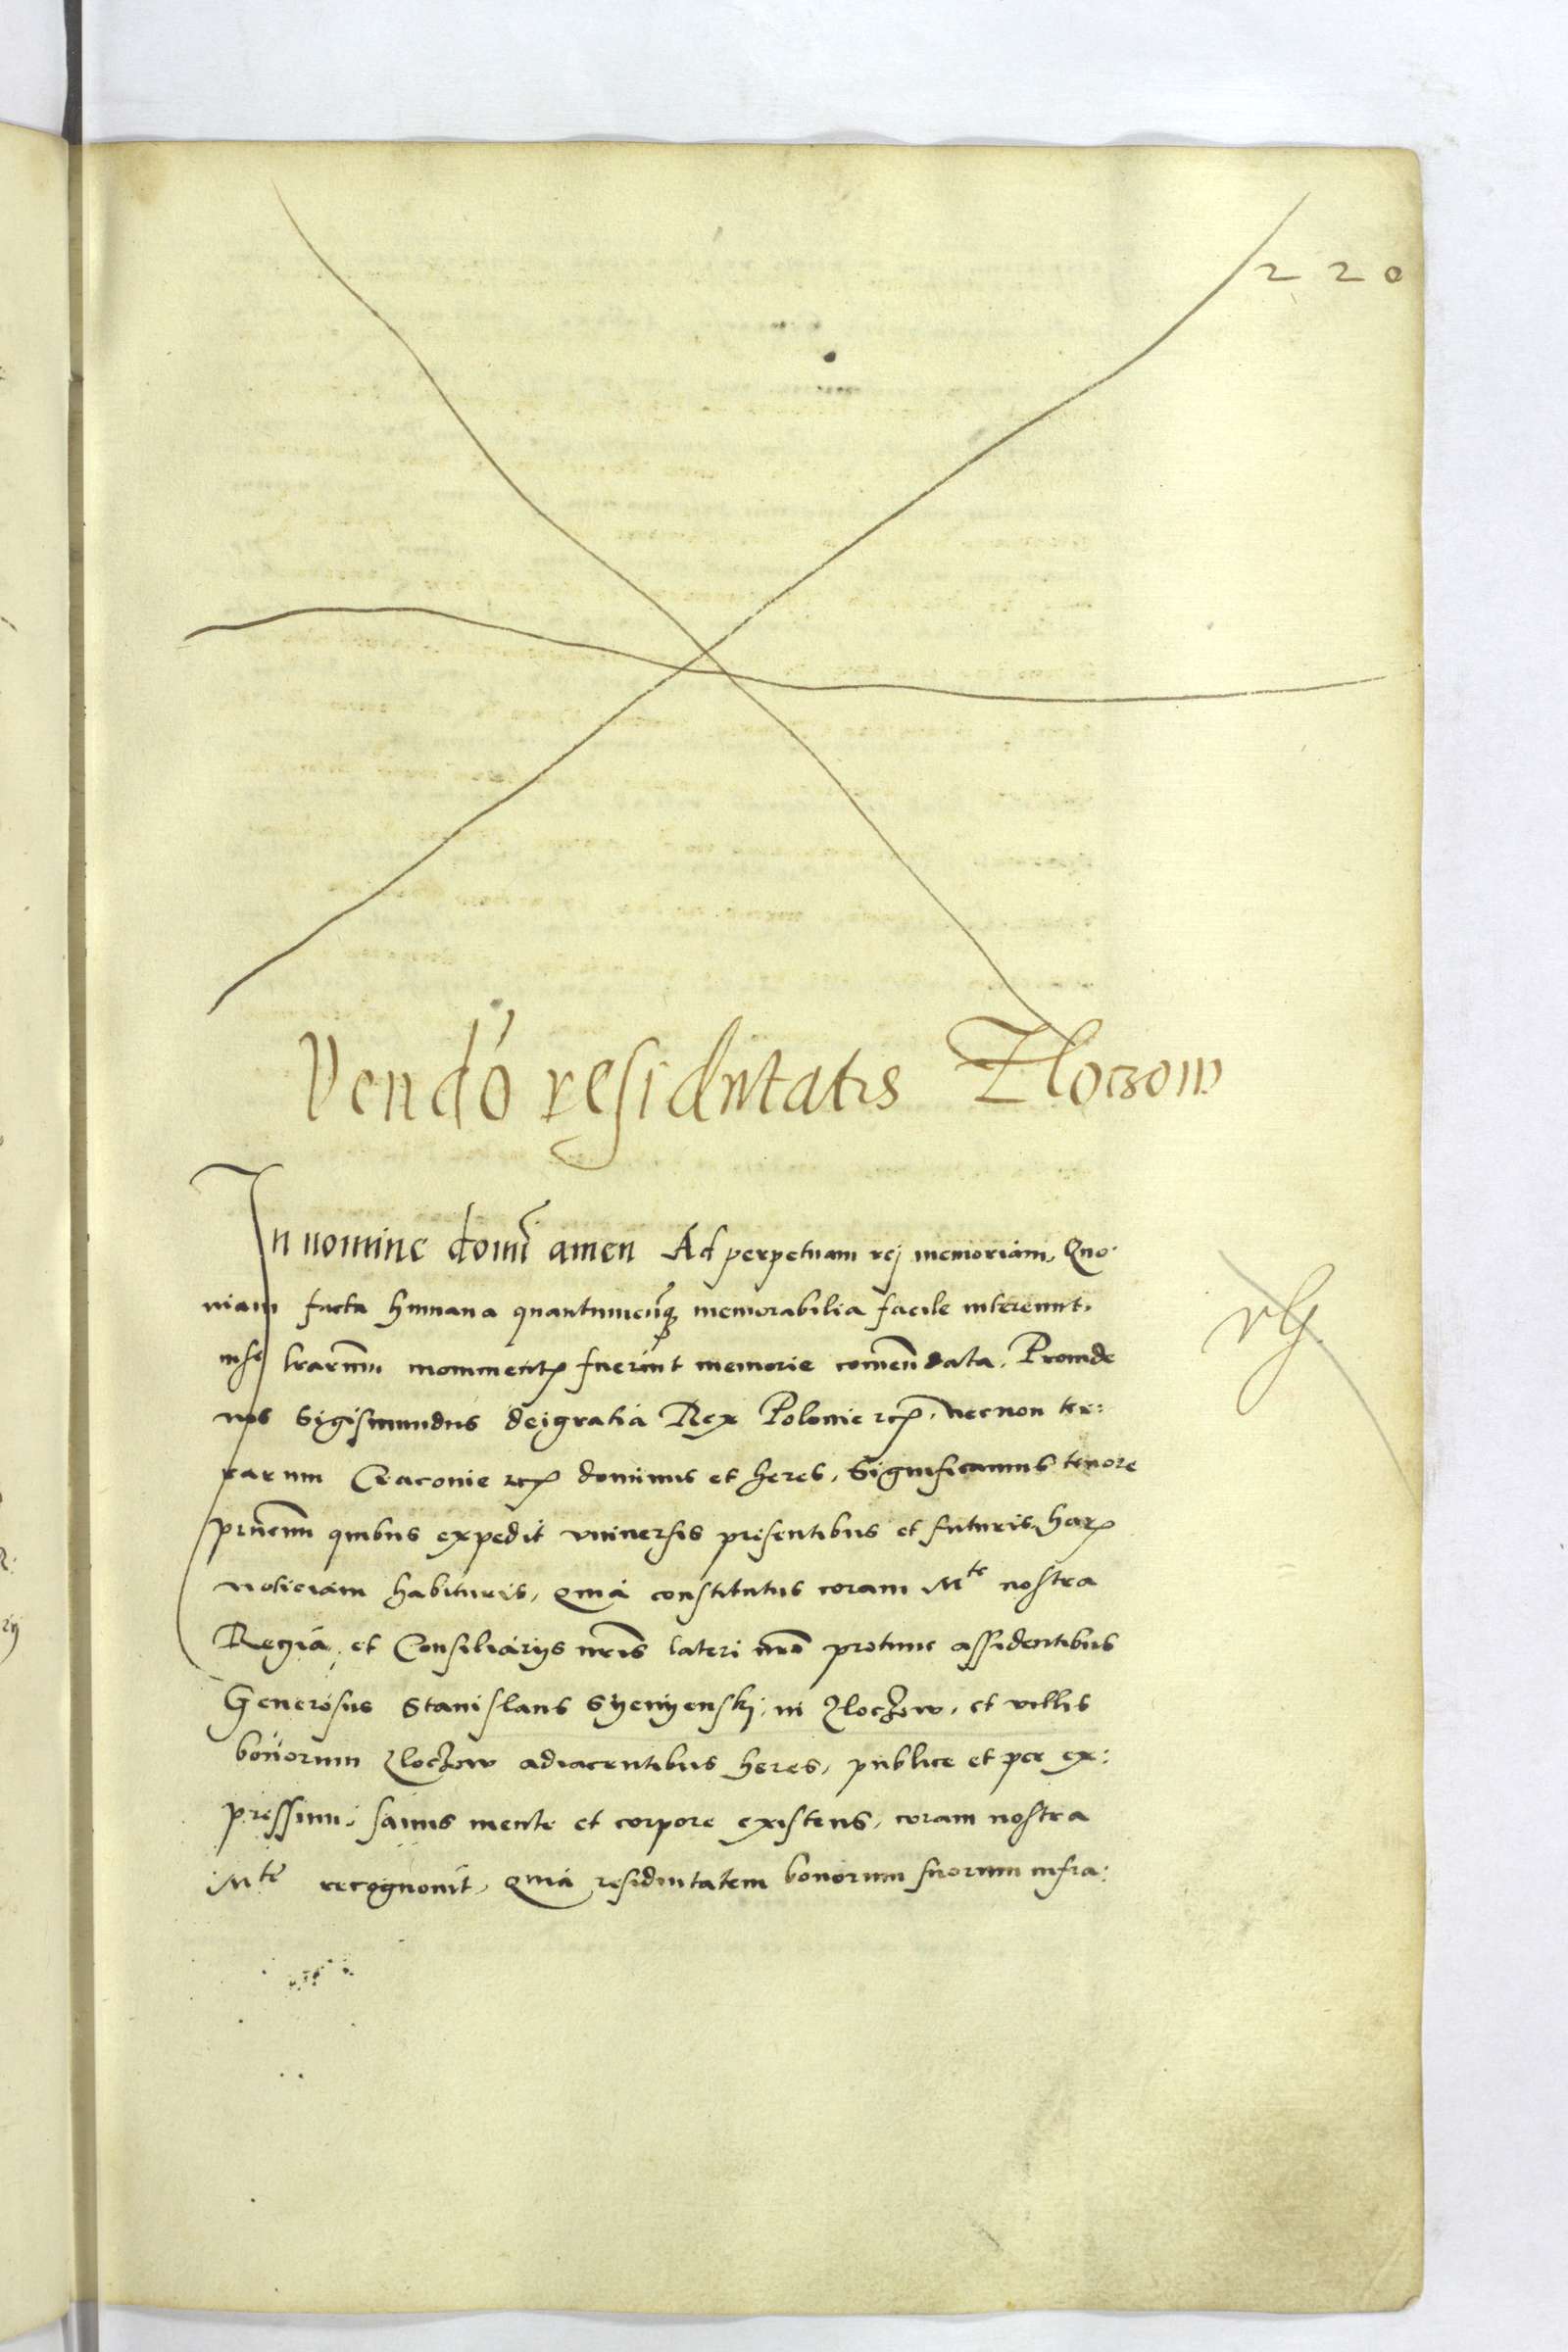 220
Vendō residuitatis Zloczow
In nomine domī amen Ad perpetuam rej memoriam, Quo-
niam facta humana quantumcūq memorabilia facile intereunt,
nisi lrarum monumentꝫ fuerint memorie comendata. Proinde
nos Sigismundus deigratia Rex Polonie etcꝫ, necnon ter:
rarum Cracovie etcꝫ dominus et heres, Significamus tenore
prnciuм quibus expedit vniuersis presentibus et futuris, harꝫ
noticiam habituris, Quia constitutus coram Mte nostra
Regia, et Consiliarijs nris lateri nro protunc assidentibus
Generosus Stanislaus Syenyenskj, in Zloczow, et villis
bonorum Zloczow adiacentibus heres, publice et per ex:
pressum, sanus mente et corpore existens, coram nostra
Mte recognouit, Quia residuitatem bonorum suorum infra: